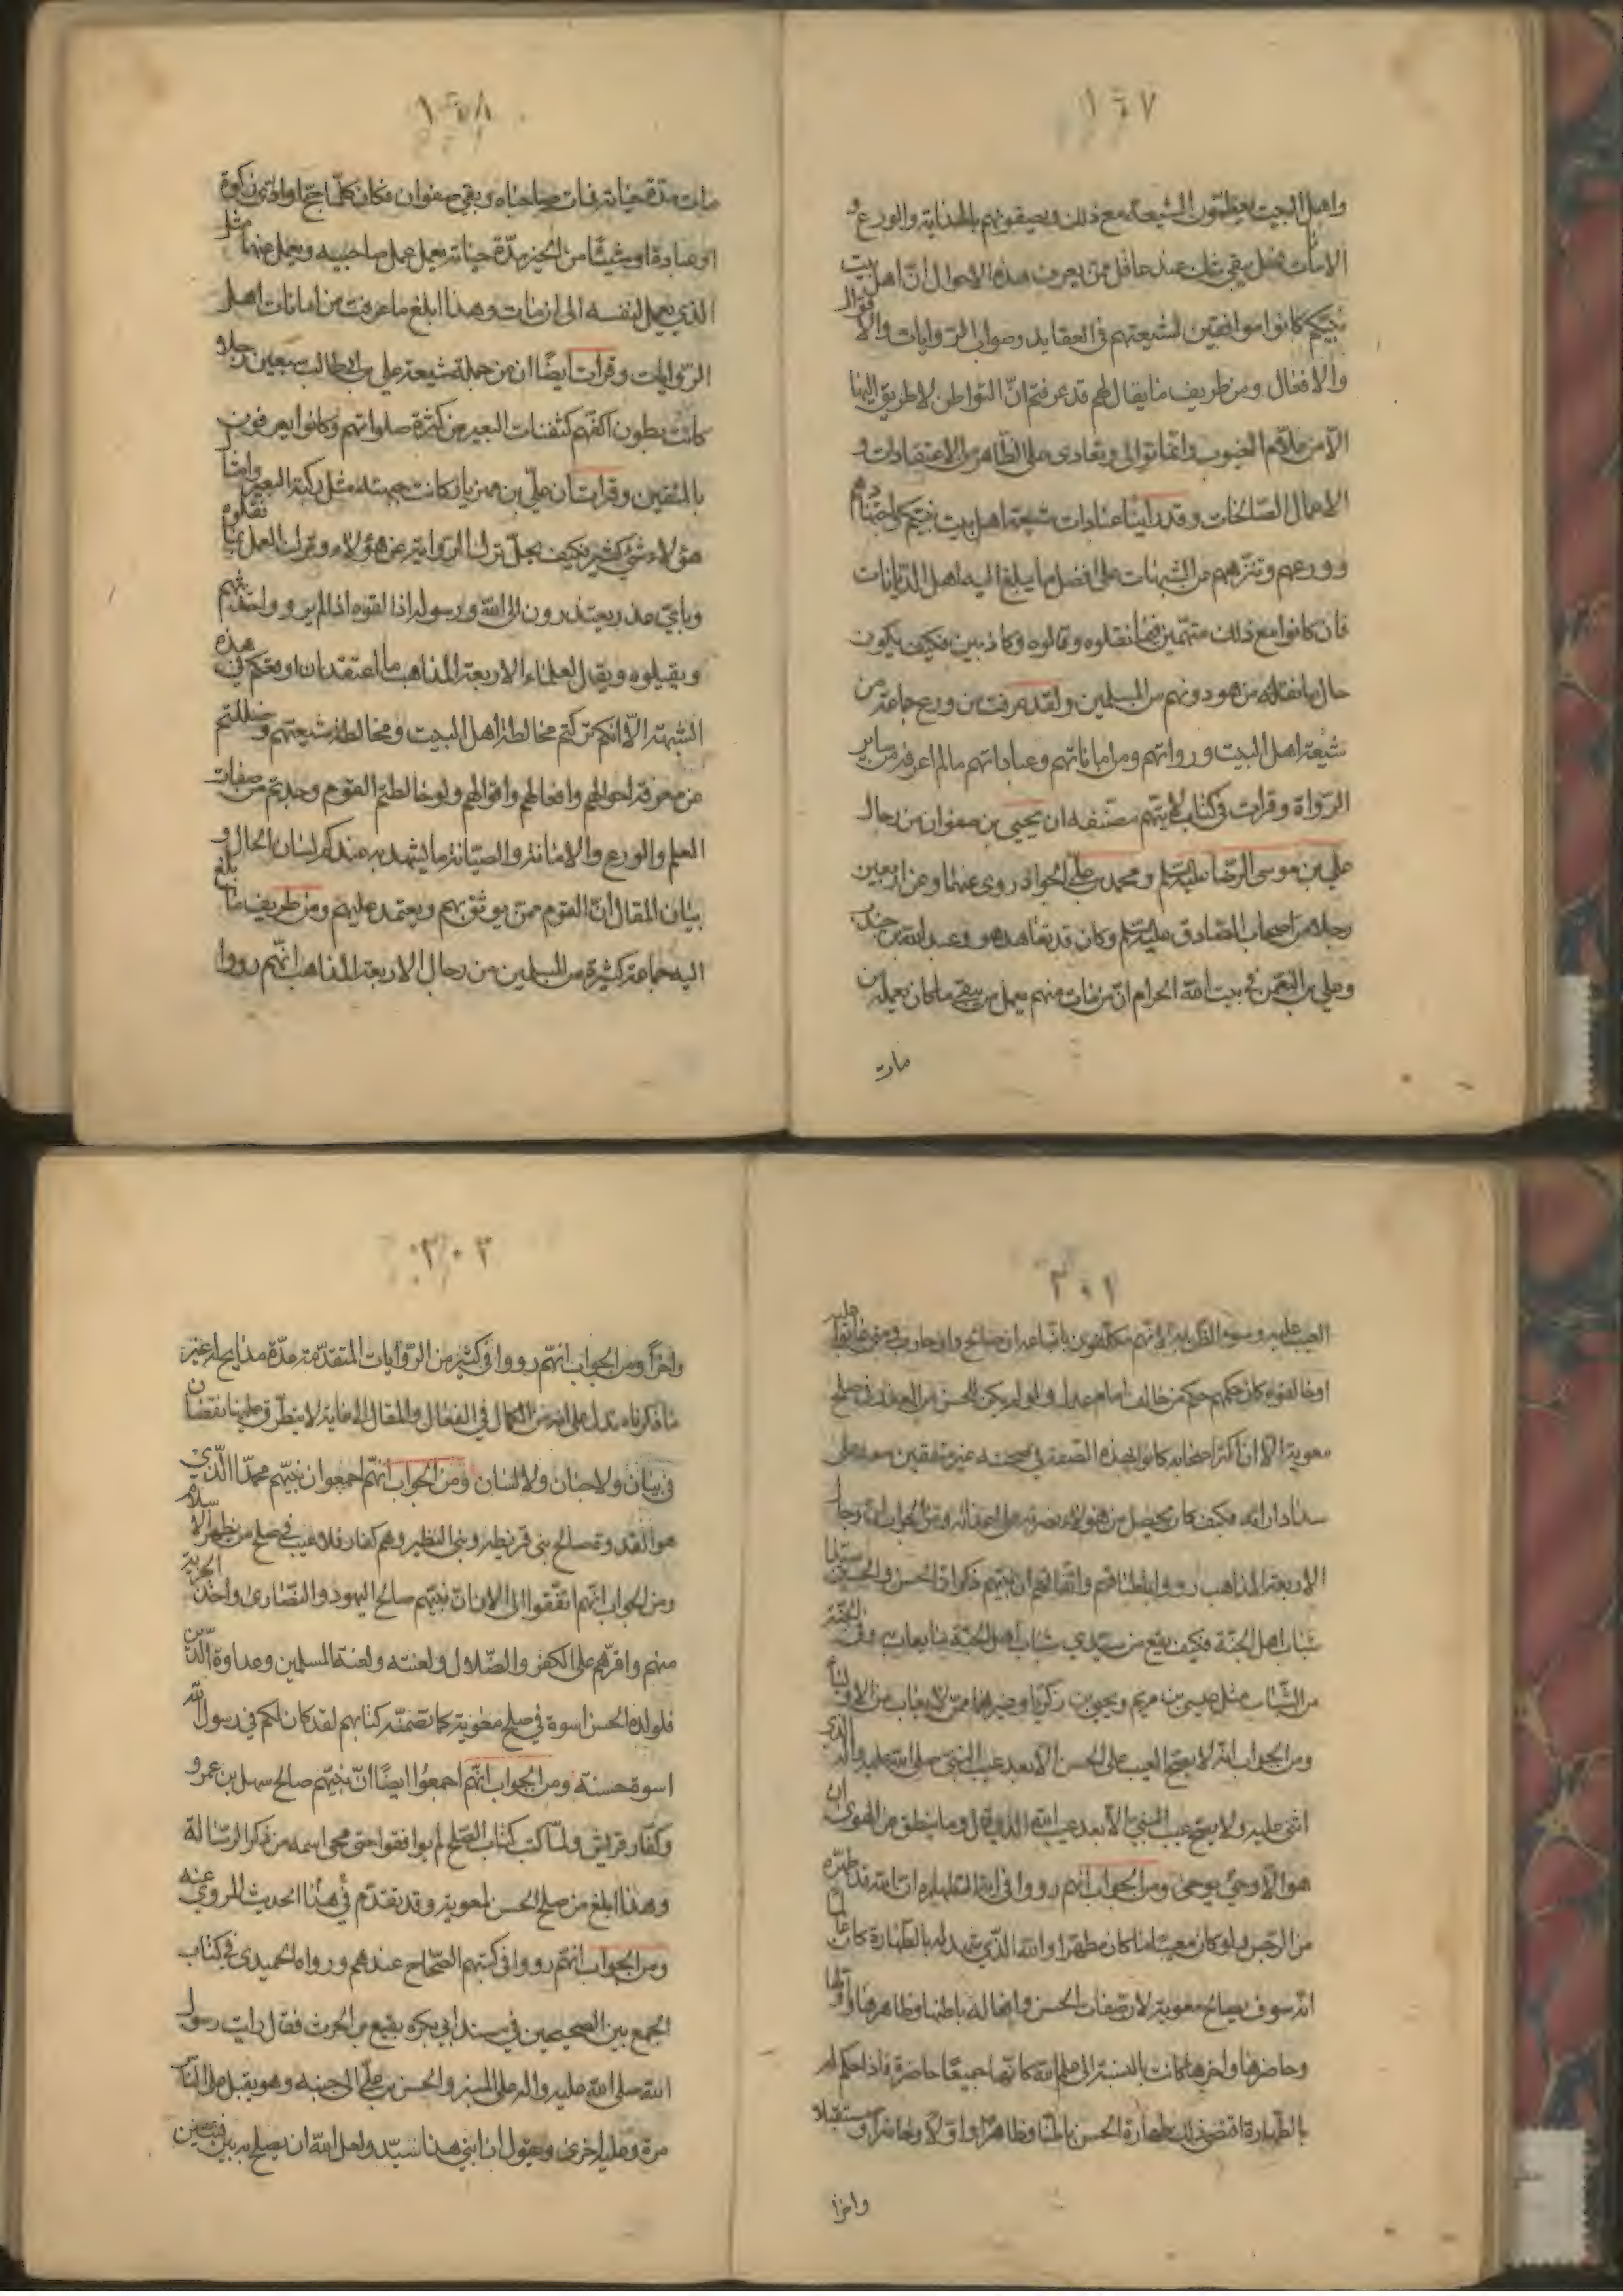 ١٦٧
واهل البيت يعظمون الشيعة مع ذلك ويصفونهم بالهداية والورع و
الامانة فهل يبقى شك عند عاقل ممن يعرف هذه الاحوال ان اهل بيت
نبيكم كانوا موافقين لشيعتهم في العقايد وصواب الروايات والاقوال
والافعال ومن طريف ما يقال لهم قد عرفتم انّ البواطن لا طريق اليها
الّا من علّام الغيوب وانما توالى وتعادى على الظاهر من الاعتقادات و
الاعمال الصالحات وقد راينا عبادات شيعة اهل بيت نبيكم واجتهادهم
وورعهم وتنزههم من الشبهات على افضل ما يبلغ اليه اهل الديانات
فان كانوا مع ذلك متهمين فيما نقلوه وقالوه وكاذبين فكيف يكون
حال ما نقله من هو دونهم من المسلمين ولقد عرفت من ورع جماعة من
شيعة اهل البيت ورواتهم ومن اماناتهم وعباداتهم ما لم اعرفه من ساير
الرواة وقرات في كتاب لا يتهم مصنفه ان يحيى بن صفوان من رجال
علي بن موسى الرضا عليه السلم ومحمد بن علي الجواد روى عنهما وعن اربعين
رجلا من اصحاب الصادق عليه السلم وكان قد تعاهد هو وعبد الله بن جندب
وعلي بن النعمن في بيت الله الحرام انّ من مات منهم يعمل من يبقى ما كان يعمله من
مات
١٦٨
مات مدّة حياته فمات صاحباه وبقي صفوان فكان كلّما حج او ادّى زكوة
او عبادة او شيئًا من الخير مدّة حياته يعمل عمل صاحبيه ويعمل عنهما مثل
الذي يعمل لنفسه الى ان مات وهذا ابلغ ما عرفت من امانات اهل
الروايات وقرات ايضًا ان من جملة شيعة علي بن ابي طالب سبعين رجلا
كانت بطون اكفّهم كثفنات البعير من كثرة صلواتهم وكانوا يعرفون
بالمثفنين وقرات ان علي بن مهزيار كانت جبهته مثل ركبة البعير وامثال
هؤلاء شئ كثير فكيف يحلّ ترك الرواية عن هؤلاء وترك العمل بما نقلوه
وباي عذر يعتذرون الى الله ورسوله اذا لقوه اذا لم يرووا حديثهم
ويقبلوه ويقال لعلماء الاربعة المذاهب ما اعتقد ان اوقعكم في هذه
الشبهة الّا انكم تركتم مخالطة اهل البيت ومخالطة شيعتهم وضللتم
عن معرفة احوالهم وافعالهم واقوالهم ولو خالطتم القوم وجدتم من صفات
العلم والورع والامانة والصيانة ما يشهد به عندكم لسان الحال و
بيان المقال انّ القوم ممن يوثق بهم ويعتمد عليهم ومن طريف ما بلغ
اليه جماعة كثيرة من المسلمين من رجال الاربعة المذاهب انّهم رووا
٣٠١
العيب عليه وسوء الظن به لانهم مكلفون باتباعه ان صالح وان حارب ومن عاب عليه
او خالفوه كان حكمهم حكم من خالف امام عدل ولو لم يكن للحسن من العذر في صلح
معوية الا ان اكثر اصحابه كانوا بهذه الصفة في صحبته غير متفقين معه على
سداد رايه فكيف كان يحصل من هؤلاء نصرة على اعدائه ومن الجواب ان رجال
الاربعة المذاهب رووا باطباقهم واتفاقهم ان نبيهم ذكر ان الحسن والحسين سيدا
شباب اهل الجنة فكيف يقع من سيدي شباب اهل الجنة ما يعاب به وفي الجنة
من الشباب مثل عيسى بن مريم ويحيى بن زكريا وغيرهما ممن لا يعاب من الاوليا
ومن الجواب انه لا يصح العيب على الحسن الا بعد عيب النبي صلى الله عليه واله الذي
اثنى عليه ولا يصح عيب النبي الا بعد عيب الله الذي قال وما ينطق عن الهوى ان
هو الا وحي يوحى ومن الجواب انهم رووا في اية الطهارة ان الله قد طهره
من الرجس ولو كان معيبًا ما كان مطهرا والله الذي شهد له بالطهارة كان عالما
انه سوف يصالح معوية لان صفات الحسن وافعاله باطنها وظاهرها واولها
وحاضرها واخرها كانت بالنسبة الى علم الله كانها جميعًا حاضرة فاذا حكم له
بالطهارة اقتضى ذلك طهارة الحسن باطنًا وظاهرًا واوّلًا وحاضرا ومستقبلا
واخرا
٣٠٢
واخرًا ومن الجواب انهم رووا في كثير من الروايات المتقدمة عدّة مدايح له غير
ما ذكرناه تدل على انه من الكمال في الفعال والمقال الى غاية لا يتطرق عليها نقصان
في بيان ولا جنان ولا لسان ومن الجواب انهم اجمعوا ان نبيهم محمدًا الذي
هو القدوة صالح بني قريظة وبني النظير وهم كفار فلا عيب في صلح من يظهر الاسلام
ومن الجواب انهم اتفقوا الى الان انّ نبيهم صالح اليهود والنصارى واخذ الجزية
منهم واقرّهم على الكفر والضلال ولعنته ولعنة المسلمين وعداوة الدين
فلولده الحسن اسوة في صلح معوية كما تضمنه كتابهم لقد كان لكم في رسول الله
اسوة حسنة ومن الجواب انهم اجمعوا ايضًا انّ نبيهم صالح سهل بن عمرو
وكفّار قريش ولمّا كتب كتاب الصلح لم يوافقوا حتى محى اسمه من ذكر الرسالة
وهذا ابلغ من صلح الحسن لمعوية وقد تقدّم في هذا الحديث المروي عنه
ومن الجواب انهم رووا في كتبهم الصّحاح عندهم ورواه الحميدي في كتاب
الجمع بين الصحيحين في مسند ابي بكرة نفيع بن الحرث فقال رايت رسول
الله صلى الله عليه واله على المنبر والحسن بن علي الى جنبه وهو يقبل على الناس
مرة وعليه اخرى ويقول ان ابني هذا سيّد ولعل الله ان يصلح به بين فئتين